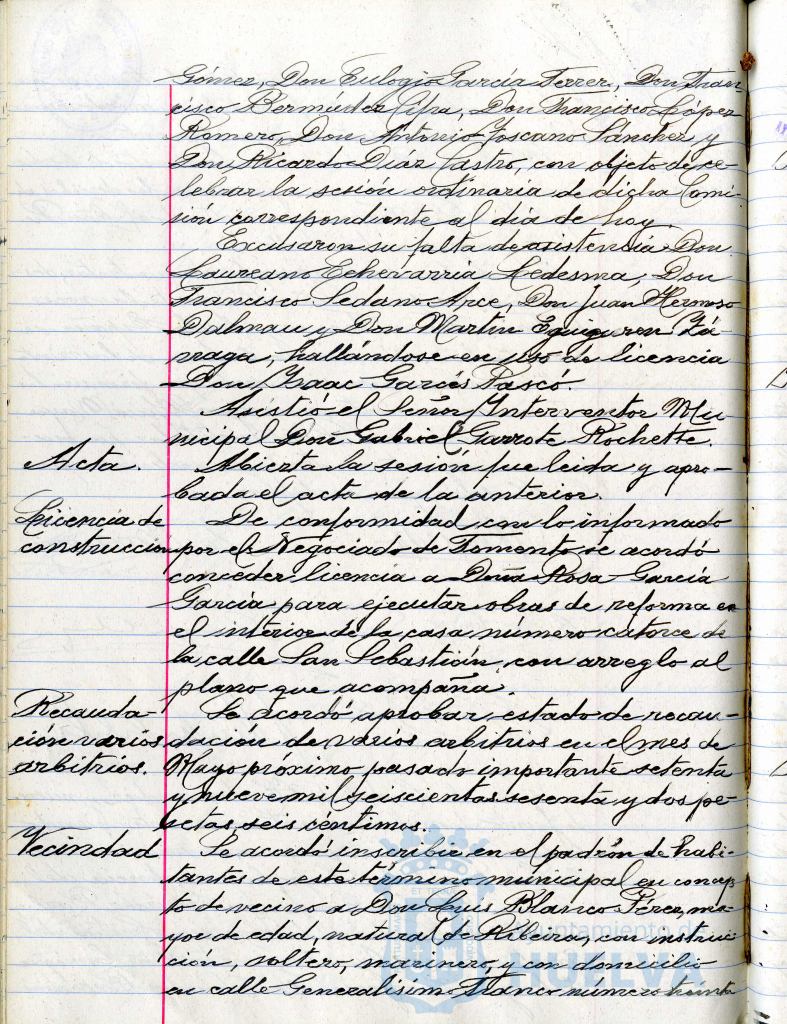 Gómez, Don Eulogio García Ferrer, Don Fran-
cisco Bermúdez Cifra, Don Francisco López
Romero, Don Antonio Toscano Sánchez y
Don Ricardo Díaz Castro, con objeto de ce-
lebrar la sesión ordinaria de dicha Comi-
sión correspondiente al día de hoy.
Excusaron su falta de asistencia Don
Laureano Echevarria Ledesma, Don
Francisco Sedano Arce, Don Juan Hermoso
Dalmau y Don Martín Eguiguren Zá-
rraga, hallándose en uso de licencia
Don Isaac Garcés Pascó.
Asistió el Señor Interventor Mu-
nicipal Don Gabriel Garrote Rochette.
Acta. Abierta la sesión fue leida y apro-
bada el acta de la anterior.
Licencia de De conformidad con lo informado
construccion por el Negociado de Fomento se acordó
conceder licencia a Doña Rosa García
García para ejecutar obras de reforma en
el interior de la casa número catorce de
la calle San Sebastión, con arreglo al
plano que acompaña.
Recauda- Se acordó aprobar estado de recau-
ción varios dación de varios arbitrios en el mes de
arbitrios. Mayo próximo pasado importante setenta
y nueve mil seiscientas sesenta y dos pe-
setas seis céntimos.
Vecindad Se acordó inscribir en el padrón de habi-
tantes de este término municipal en concep-
to de vecino a Don Luis Blanco Pérez, ma-
yor de edad, natural de Ribeira, con instruc-
ción, soltero, marinero, y con domicilio
en calle Generalísimo Franco número treinta
Ayuntamiento de
HUELVA